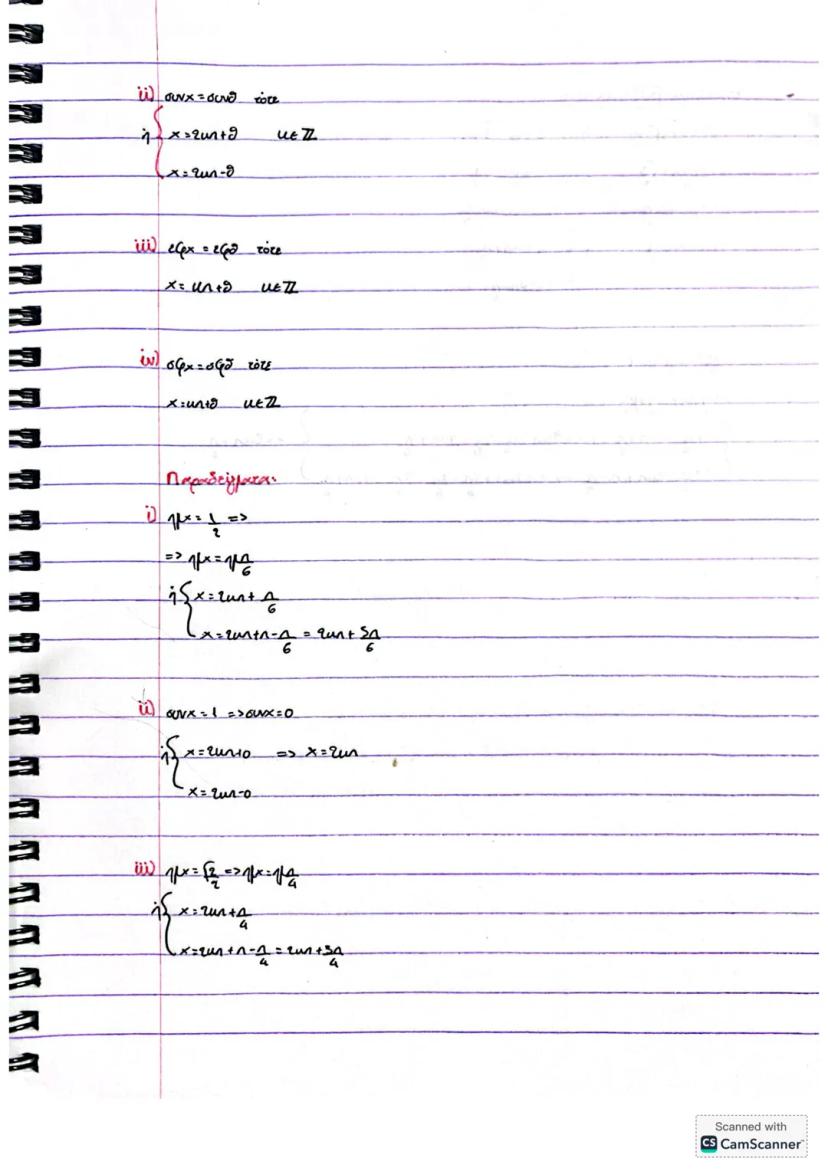 ii) συνx = συνθ τότε
ή { x = 2κπ + θ κ ∈ ℤ
x = 2κπ - θ
iii) εφx = εφθ τότε
x = κπ + θ κ ∈ ℤ
iv) σφx = σφθ τότε
x = κπ + θ κ ∈ ℤ
Παραδείγματα:
i) ημx = 1/2 =>
=> ημx = ημ π/6
ή { x = 2κπ + π/6
x = 2κπ + π - π/6 = 2κπ + 5π/6
ii) συνx = 1 => συνx = 0
ή { x = 2κπ + 0 => x = 2κπ
x = 2κπ - 0
iii) ημx = √2/2 => ημx = ημ π/4
ή { x = 2κπ + π/4
x = 2κπ + π - π/4 = 2κπ + 3π/4
Scanned with
CS CamScanner